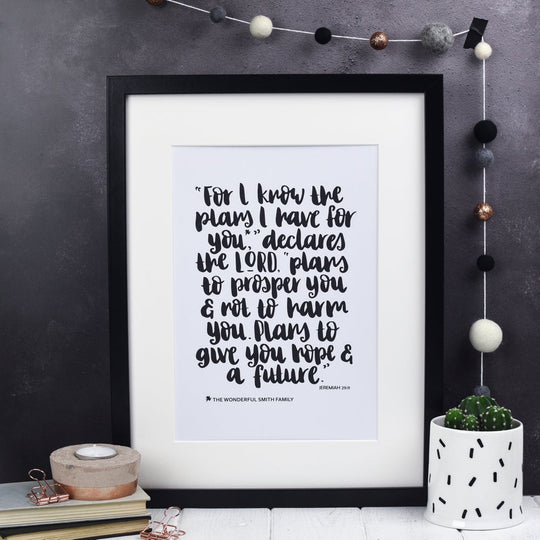 “For I know the
plans I have for
you,*” declares
the LORD. “plans
to prosper you
& not to harm
you. Plans to
give you hope &
a future.”
JEREMIAH 29:11
* THE WONDERFUL SMITH FAMILY